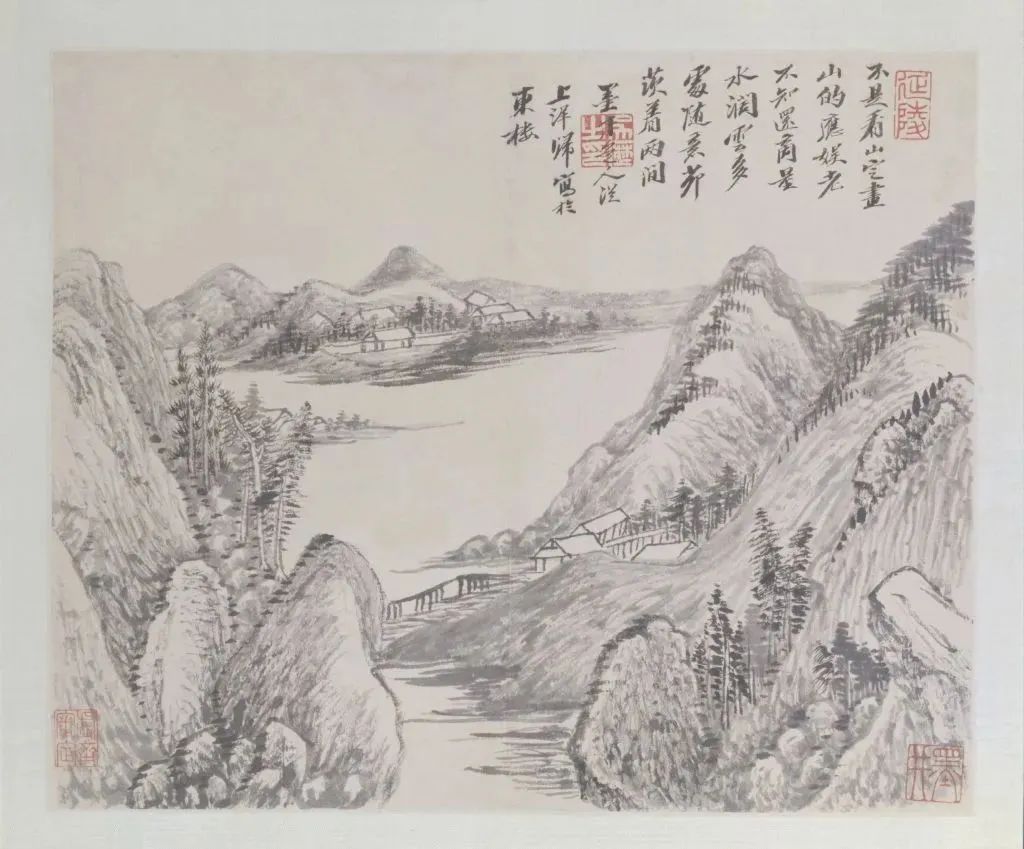 延陵
不是看山定畫
山的應娛老
不知還商量
水濶雲多
處隨意茆
茨着兩間
墨井道人從
上洋歸寫於
東樓
墨井